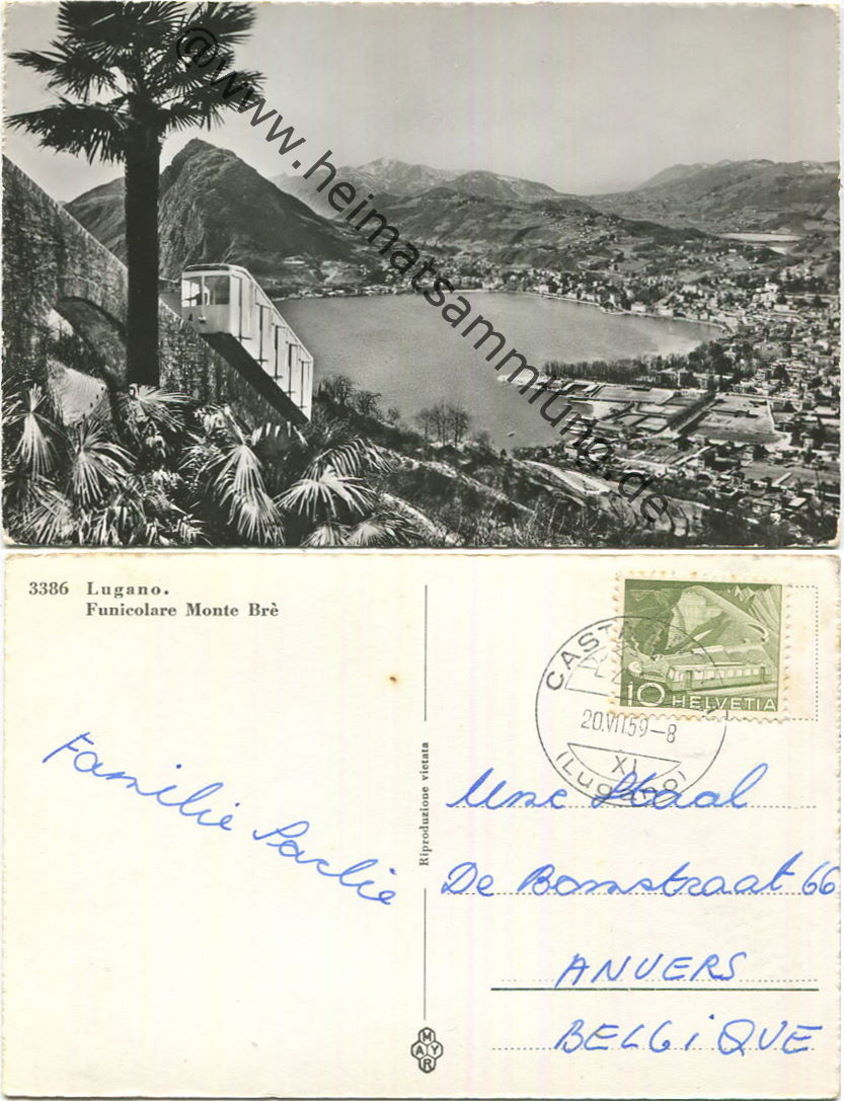 @www.heimatsammlung.de
3386 Lugano.
Funicolare Monte Brè
10 HELVETIA
20.VII.59-8
XI
(Lugano)
Riproduzione vietata
Familie
De Bomstraat 66
ANVERS
BELGiQUE
MAYR